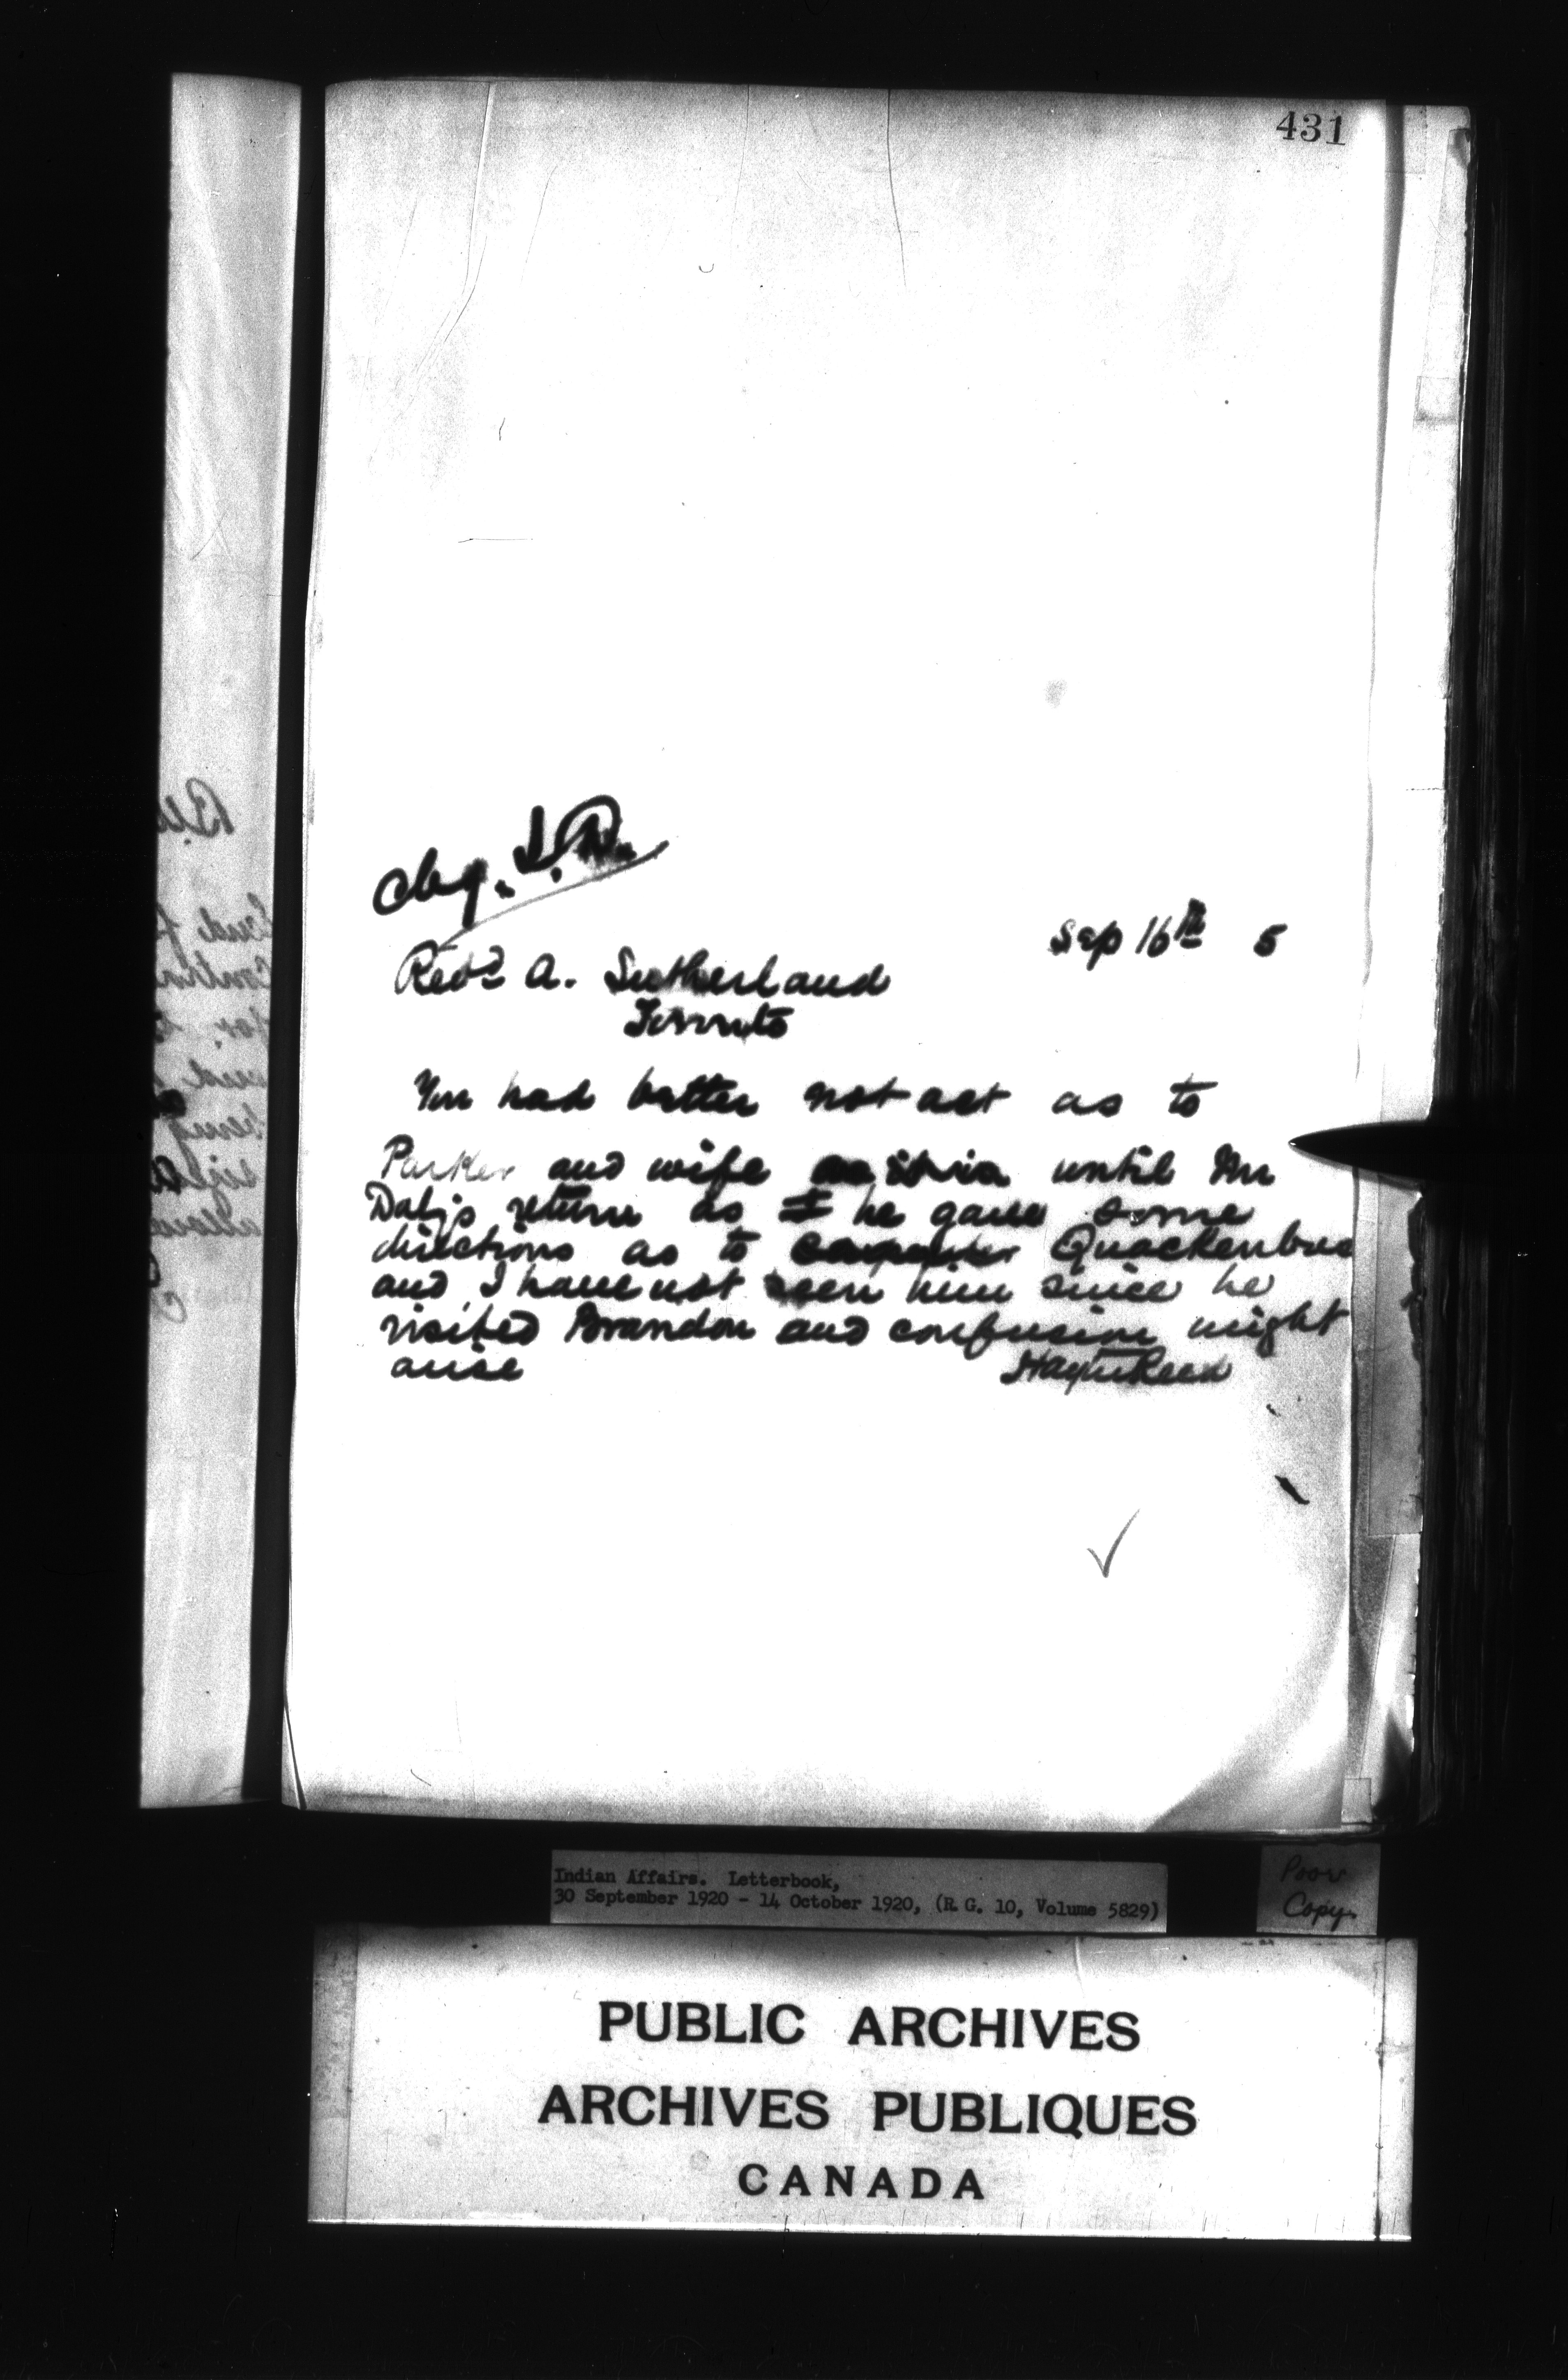 431
Chg. I.D.
Sep 16th 5
Revd. A. Sutherland
Toronto
You had better not act as to
Parker and wife until Mr
Dalys return as I he gave some
directions as to Quackenbus
and I have not seen him since he
visited Brandon and confusion might
arise
Hayter Reed
Indian Affairs. Letterbook,
30 September 1920 - 14 October 1920, (R.G. 10, Volume 5829)
Poor
Copy.
PUBLIC ARCHIVES
ARCHIVES PUBLIQUES
CANADA